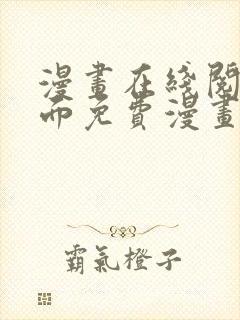 漫畫在綫閱
面免費漫畫
霸氣橙子